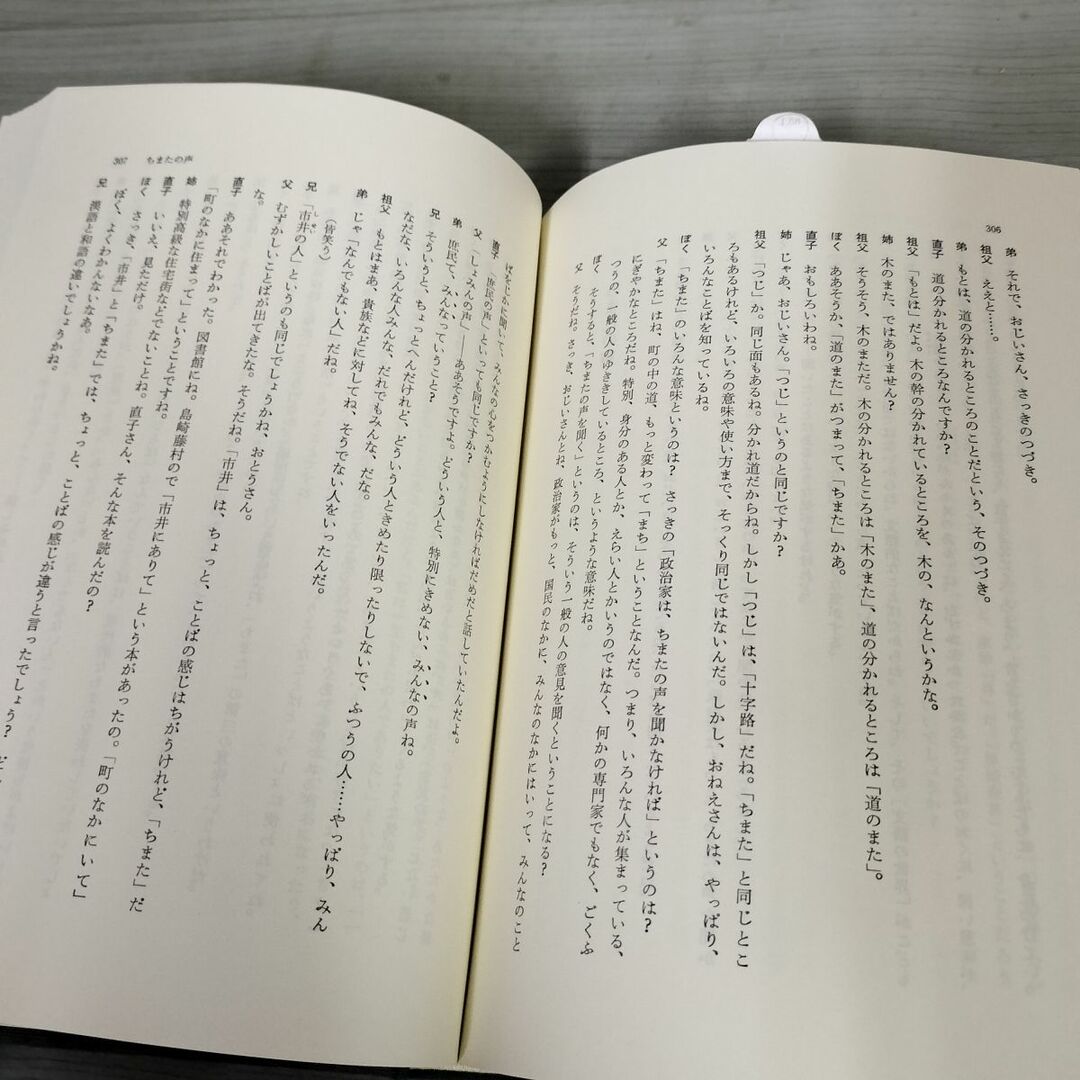 306
弟 それで、おじいさん、さっきのつづき。
祖父 ええと……。
弟 もとは、道の分かれるところのことだという、そのつづき。
直子 道の分かれるところなんですか?
祖父 「もとは」だよ。木の幹の分かれているところを、木の、なんというかな。
姉 木のまた、ではありません?
祖父 そうそう、木のまただ。木の分かれるところは「木のまた」、道の分かれるところは「道のまた」。
ぼく ああそうか、「道のまた」がつまって、「ちまた」かあ。
直子 おもしろいわね。
姉 じゃあ、おじいさん。「つじ」というのと同じですか?
祖父 「つじ」か。同じ面もあるね。分かれ道だからね。しかし「つじ」は、「十字路」だね。「ちまた」と同じとこ
ろもあるけれど、いろいろの意味や使い方まで、そっくり同じではないんだ。しかし、おねえさんは、やっぱり、
いろんなことばを知っているね。
ぼく 「ちまた」のいろんな意味というのは? さっきの「政治家は、ちまたの声を聞かなければ」というのは?
父 「ちまた」はね、町の中の道、もっと変わって「まち」ということなんだ。つまり、いろんな人が集まっている、
にぎやかなところだね。特別、身分のある人とか、えらい人とかいうのではなく、何かの専門家でもなく、ごくふ
つうの、一般の人のゆききしているところ、というような意味だね。
ぼく そうすると、「ちまたの声を聞く」というのは、そういう一般の人の意見を聞くということになる?
父 そうだね。さっき、おじいさんとね、政治家がもっと、国民のなかに、みんなのなかにはいって、みんなのこと
307 ちまたの声
に聞いて、みんなの心をつかむようにしなければだめだと話していたんだよ。
直子 「庶民の声」といっても同じですか?
父 「しょみんの声」――ああそうですよ。どういう人と、特別にきめない、みんなの声ね。
弟 庶民て、みんなっていうこと?
兄 そういうと、ちょっとへんだけれど、どういう人ときめたり限ったりしないで、ふつうの人……やっぱり、みん
なだな、いろんな人みんな、だれでもみんな、だな。
祖父 もとはまあ、貴族などに対してね、そうでない人をいったんだ。
弟 じゃ「なんでもない人」だね。
(皆笑う)
兄 「市井の人」というのも同じでしょうかね、おとうさん。
父 むずかしいことばが出てきたな。そうだね。「市井」は、ちょっと、ことばの感じはちがうけれど、「ちまた」だ
な。
直子 ああそれでわかった。図書館にね。島崎藤村で「市井にありて」という本があったの。「町のなかにいて」
「町のなかに住まって」ということですね。
姉 特別高級な住宅街などでないことね。直子さん、そんな本を読んだの?
直子 いいえ、見ただけ。
ぼく さっき、「市井」と「ちまた」では、ちょっと、ことばの感じが違うと言ったでしょう?
ぼく、よくわかんないなあ。
兄 漢語と和語の違いでしょうかね。